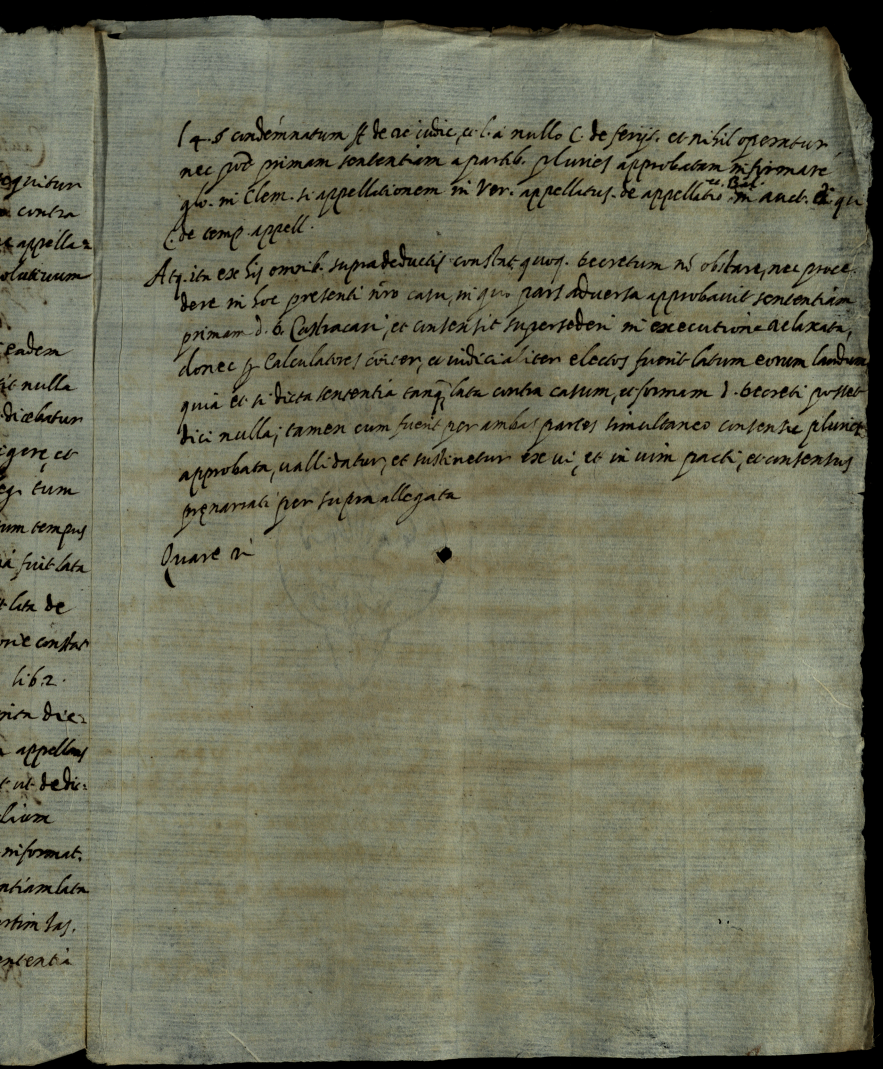 equitur
contra
appella=
olutiuum
eadem
it nulla
dicebatur
igere et
tum
um tempus
fuit lata
lata de
constat
lib. 2.
die=
appellans
ut dedic=
lium
informat.
ntiam lata
rtim Ias.
ententia
l. 4. § condemnatum ff de re iudic, et l. a nullo C. de ferijs. et nihil operatur
nec pōt primam sententiam a partib. pluries approbatam infirmare
glo. in Clem. si appellationem in Ver. appellatus. de appellatio. et Bal. in auct. ei qui
C. de temp. appell.
Atq. ita ex his omnib. supradeductis constat quoq. decretum nō obstare, nec proce=
dere in hoc presenti nr̄o casu, in quo pars aduersa approbauit sententiam
primam d. b. Castracani, et consensit supersederi in executione relaxata,
donec p Calculatores et iudicialiter electos fuerit latum eorum laudum
quia et si dicta sententia tanq. lata contra casum, et formam d. decreti posset
dici nulla, tamen cum fuerit per ambas partes simultaneo consensu pluries
approbata, uallidatur, et sustinetur ex ui, et in uim pacti, et consensus
prenarrati per supra allegata
Quare